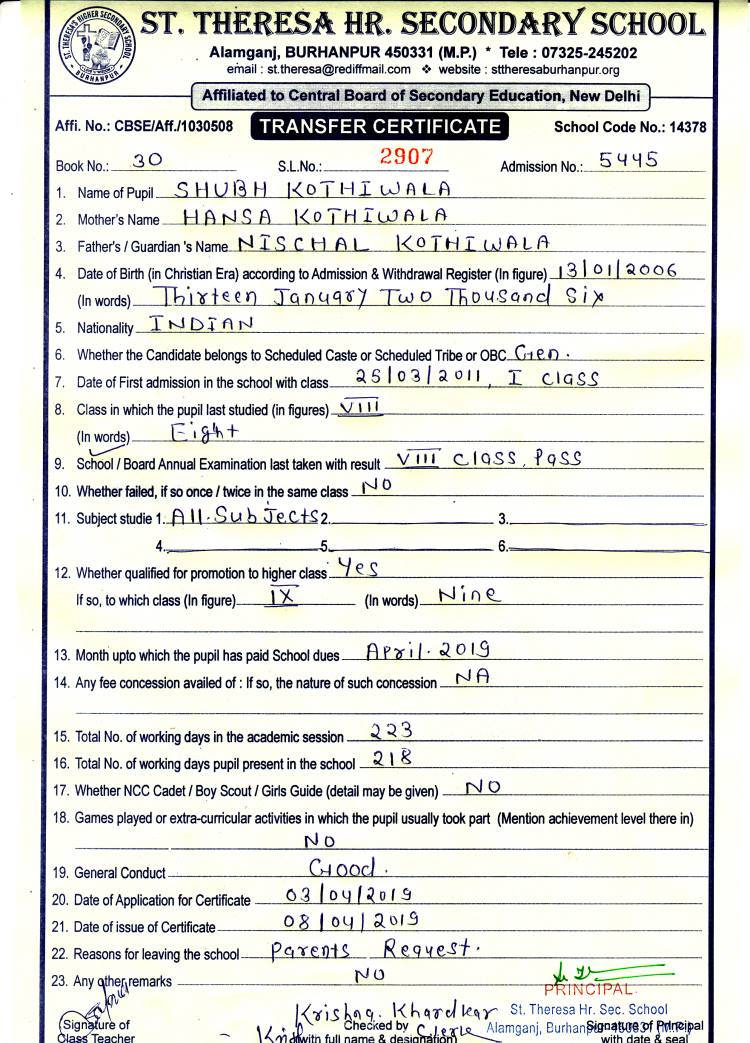 ST. THERESA HR. SECONDARY SCHOOL
ST. THERESA'S HIGHER SECONDARY SCHOOL BURHANPUR
Alamganj, BURHANPUR 450331 (M.P.) * Tele : 07325-245202
email : st.theresa@rediffmail.com ❖ website : sttheresaburhanpur.org
Affiliated to Central Board of Secondary Education, New Delhi
Affi. No.: CBSE/Aff./1030508 TRANSFER CERTIFICATE School Code No.: 14378
Book No.: 30 S.L.No.: 2907 Admission No.: 5445
1. Name of Pupil SHUBH KOTHIWALA
2. Mother's Name HANSA KOTHIWALA
3. Father's / Guardian 's Name NISCHAL KOTHIWALA
4. Date of Birth (in Christian Era) according to Admission & Withdrawal Register (In figure) 13/01/2006
(In words) Thirteen January Two Thousand Six
5. Nationality INDIAN
6. Whether the Candidate belongs to Scheduled Caste or Scheduled Tribe or OBC Gen.
7. Date of First admission in the school with class 25/03/2011, I Class
8. Class in which the pupil last studied (in figures) VIII
(In words) Eight
9. School / Board Annual Examination last taken with result VIII Class, Pass
10. Whether failed, if so once / twice in the same class NO
11. Subject studie 1. All.Subjects 2. 3.
4. 5. 6.
12. Whether qualified for promotion to higher class Yes
If so, to which class (In figure) IX (In words) Nine
13. Month upto which the pupil has paid School dues April. 2019
14. Any fee concession availed of : If so, the nature of such concession NA
15. Total No. of working days in the academic session 223
16. Total No. of working days pupil present in the school 218
17. Whether NCC Cadet / Boy Scout / Girls Guide (detail may be given) NO
18. Games played or extra-curricular activities in which the pupil usually took part (Mention achievement level there in)
NO
19. General Conduct Good.
20. Date of Application for Certificate 03/04/2019
21. Date of issue of Certificate 08/04/2019
22. Reasons for leaving the school Parents Request.
23. Any other remarks NO
PRINCIPAL
Krishna. Khardkar St. Theresa Hr. Sec. School
Signature of Checked by Clerk Alamganj, Burhanpur 450331 (M.P.) Signature of Principal
Class Teacher (with full name & designation) with date & seal